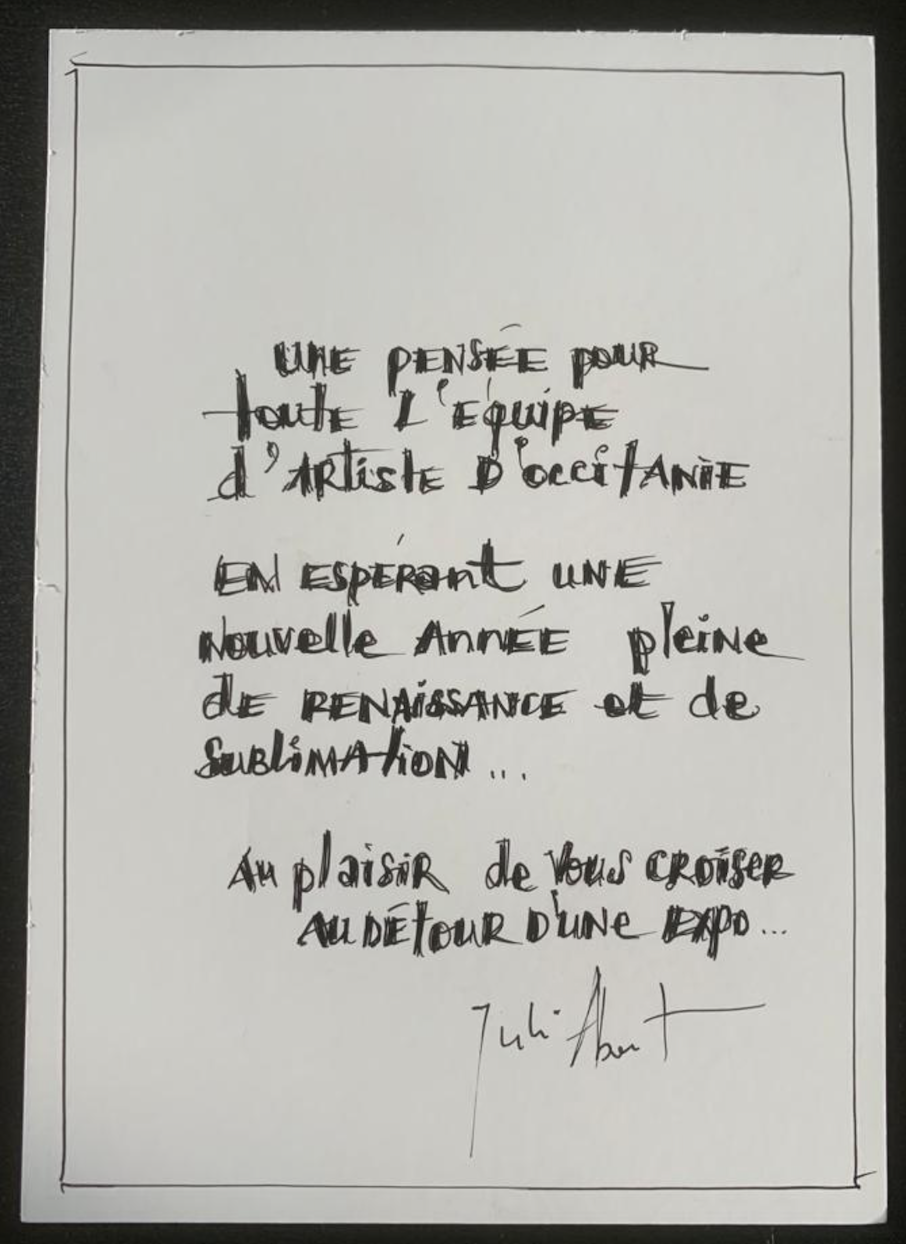 UNE PENSÉE pour
toute L'Équipe
d'Artiste D'occitanie
EN ESPÉRant UNE
Nouvelle Année pleine
de RENAissance et de
Sublimation...
Au plaisir de Vous croiser
AU Détour D'UNE EXPO...